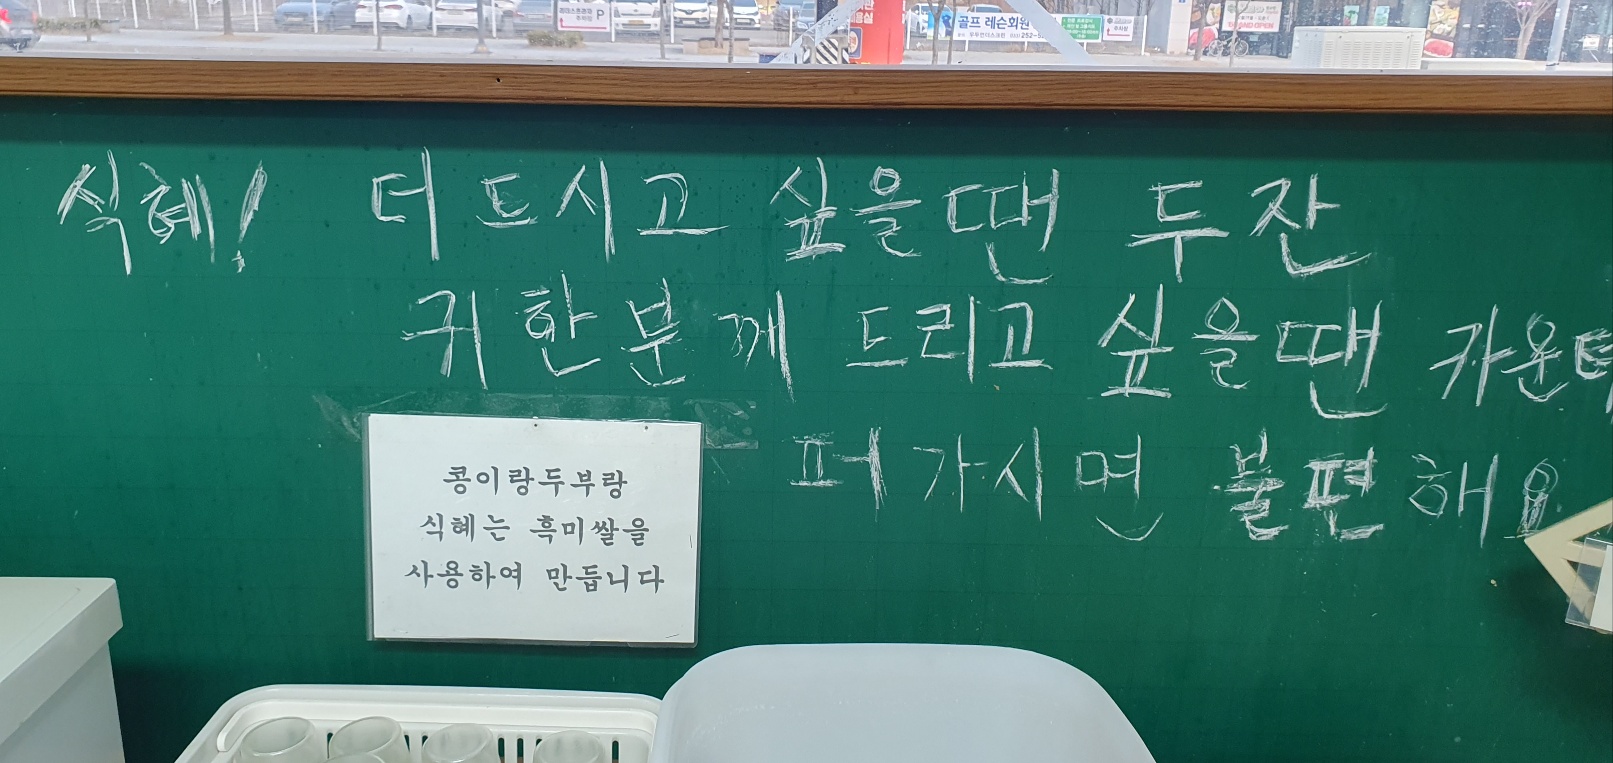 골프 레슨회원
식혜! 더 드시고 싶을땐 두잔
귀한분께 드리고 싶을땐 카운터
퍼가시면 불편해요
콩이랑두부랑
식혜는 흑미쌀을
사용하여 만듭니다